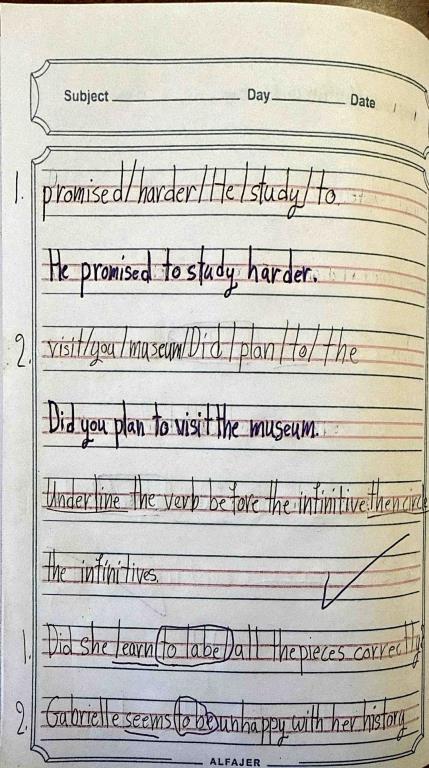 Subject Day Date
1. promised/harder/He/study/to.
He promised to study harder.
2. visit/you/museum/Did/plan/to/the
Did you plan to visit the museum.
Underline the verb before the infinitive then circle
the infinitives.
1. Did she learn to label all the pieces correctly?
2. Gabrielle seems to be unhappy with her history
ALFAJER